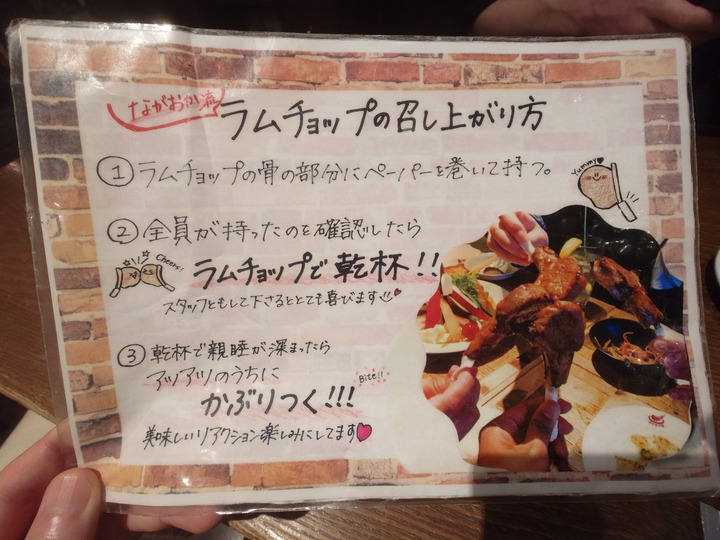 ながおか流
ラムチョップの召し上がり方
① ラムチョップの骨の部分にペーパーを巻いて持つ。
Yummy♥
② 全員が持ったのを確認したら
Cheers!
ラムチョップで乾杯!!
スタッフともして下さるととても喜びます♥
③ 乾杯で親睦が深まったら
アツアツのうちに
Bite!!
かぶりつく!!!
美味しいリアクション楽しみにしてます♥